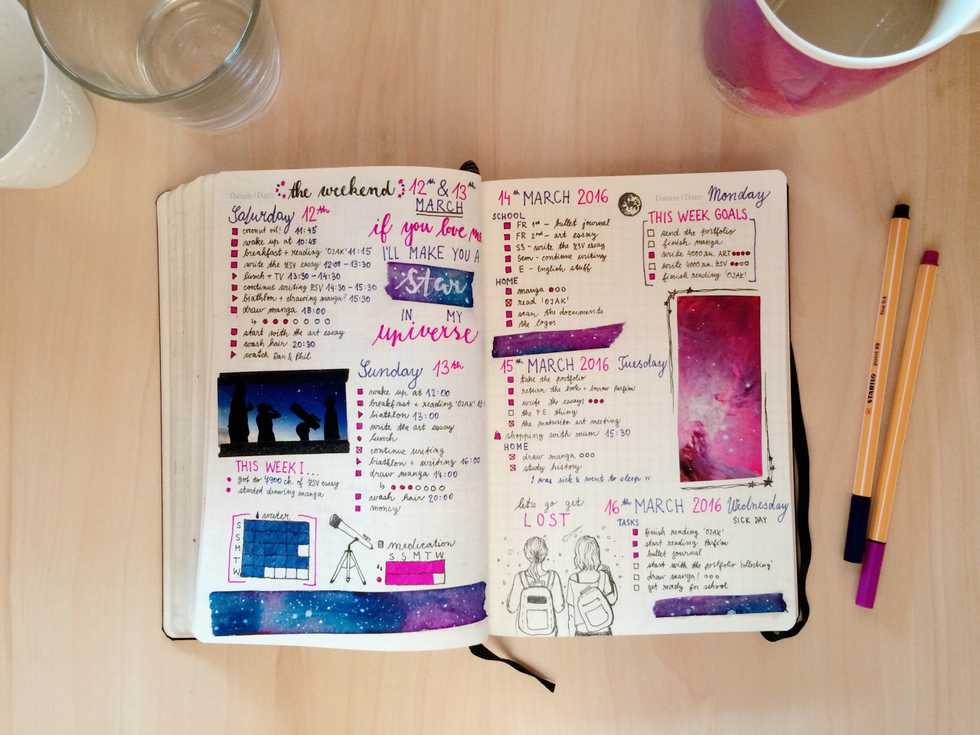 Datum / Date:
the weekend
12th & 13th
MARCH
Saturday 12th
coconut oil! 11:45
wake up at 10:45
breakfast + reading 'OJAK' 11:15
write the RSV essay 12:00 - 13:30
lunch + TV 13:30 - 14:30
continue writing RSV 14:30 - 15:30
biathlon + drawing manga? 15:30
draw manga 18:00
start with the art essay
wash hair 20:30
watch Dan & Phil
if you love me
I'LL MAKE YOU A
star
IN MY
universe
Sunday 13th
wake up at 12:00
breakfast + reading 'OJAK'
biathlon 13:00
write the art essay
lunch
continue writing
biathlon + writing 16:00
draw manga 14:00
wash hair 20:00
money!
THIS WEEK I...
got to 4900 ch. of RSV essay
started drawing manga
water
S
S
M
T
W
medication
S S M T W
14th MARCH 2016
Datum / Date:
Monday
SCHOOL
FR 1st - bullet journal
FR 2nd - art essay
SS - write the RSV essay
Sem - continue writing
E - english stuff
HOME
manga
read 'OJAK'
scan the documents
the logos
THIS WEEK GOALS
send the portfolio
finish manga
write 4000 ch. ART
write 4000 ch. RSV
finish reading 'OJAK'
15th MARCH 2016 Tuesday
take the portfolio
return the book + borrow Parfém
write the essays
the P.E. thing
the maturita art meeting
shopping with mum 15:30
HOME
draw manga
study history
I was sick & went to sleep
let's go get
LOST
16th MARCH 2016 Wednesday
TASKS
SICK DAY
finish reading 'OJAK'
start reading Parfém
bullet journal
start with the portfolio
draw manga!
get ready for school
STABILO
point 88